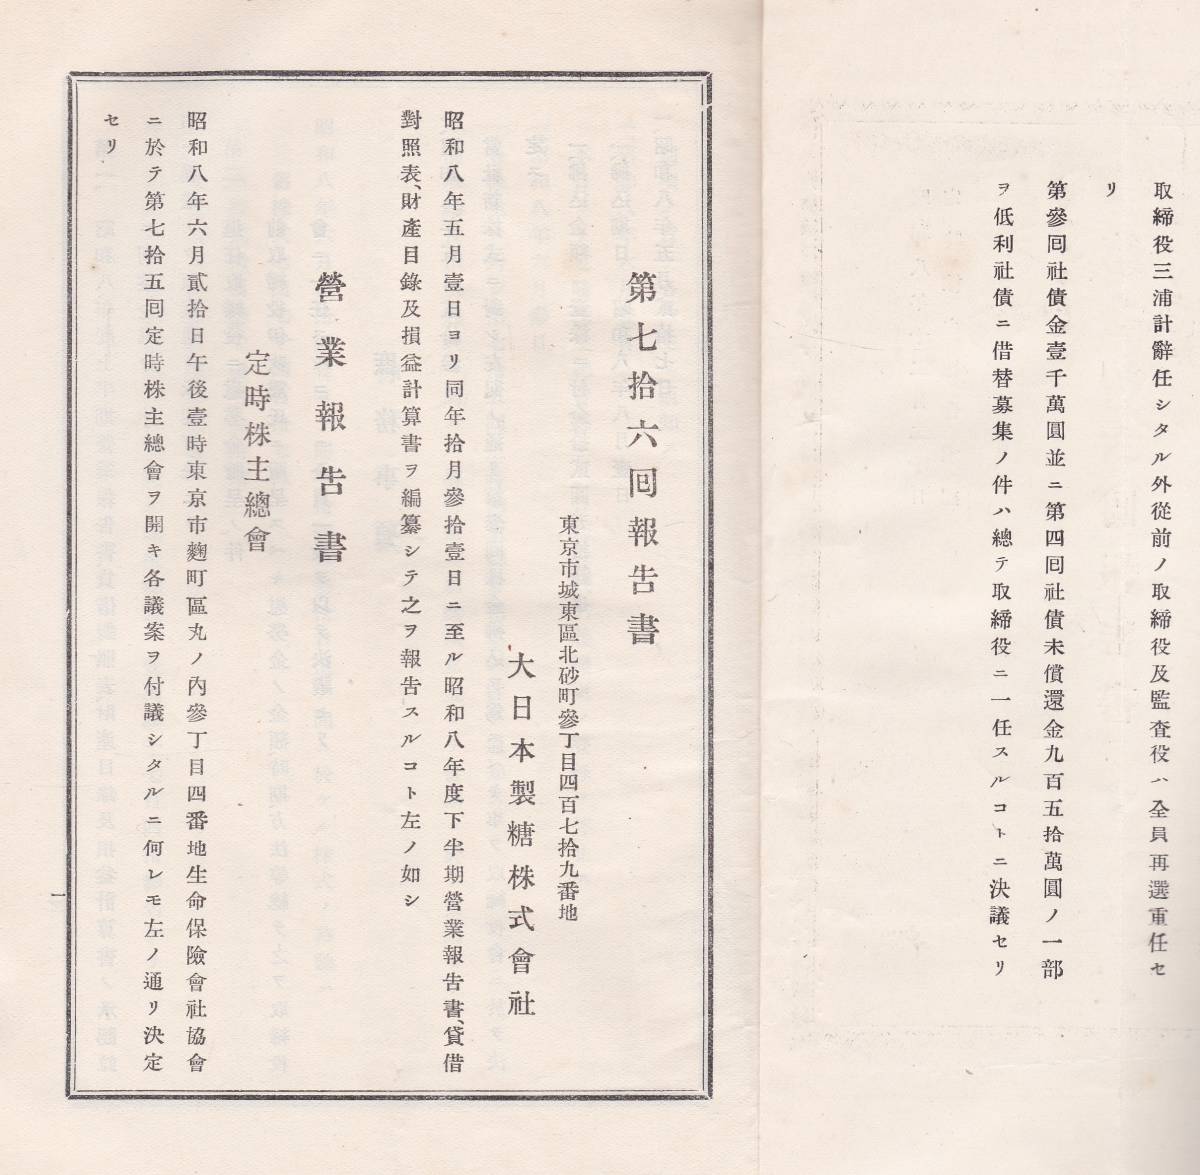 取締役三浦計辭任シタル外從前ノ取締役及監査役ハ全員再選重任セ
リ
第參囘社債金壹千萬圓並ニ第四囘社債未償還金九百五拾萬圓ノ一部
ヲ低利社債ニ借替募集ノ件ハ總テ取締役ニ一任スルコトニ決議セリ
第七拾六囘報告書
東京市城東區北砂町參丁目四百七拾九番地
大日本製糖株式會社
昭和八年五月壹日ヨリ同年拾月參拾壹日ニ至ル昭和八年度下半期營業報告書、貸借
對照表、財產目錄及損益計算書ヲ編纂シテ之ヲ報告スルコト左ノ如シ
營業報告書
定時株主總會
昭和八年六月貳拾日午後壹時東京市麴町區丸ノ內參丁目四番地生命保險會社協會
ニ於テ第七拾五囘定時株主總會ヲ開キ各議案ヲ付議シタルニ何レモ左ノ通リ決定
セリ
一